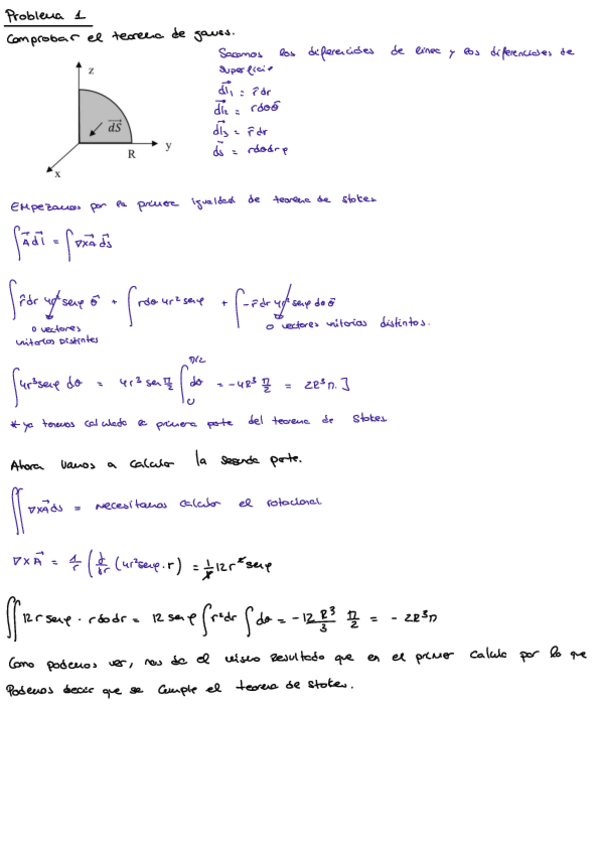 Problema 1
Comprobar el teorema de gauss.
Sacamos los diferenciales de linea y los diferenciales de
superficie
z
dS
y
R
x
dl₁ = r̂dr
dl₂ = rdθθ̂
dl₃ = r̂dr
ds = rdθdrφ
Empezamos por la primera igualdad de teorema de Stokes
∫A⃗dl⃗ = ∫∇xA⃗ds⃗
∫r̂dr 4r²senφ θ̂ + ∫rdθ4r²senφ + ∫-r̂dr 4r²senφdθθ̂
0 vectores
unitarios distintos
0 vectores unitarios distintos.
∫4r³senφ dθ = 4r³ sen π/2 ∫₀^π/2 dθ = -4R³ π/2 = 2R³π. ]
* ya temos calculado la primera parte del teorema de Stokes
Ahora vamos a calcular la segunda parte.
∬∇xA⃗ds = necesitamos calcular el rotacional
∇xA⃗ = 1/r (d/dr (4r²senφ.r) = 1/r 12r² senφ
∬12rsenφ · rdθdr = 12 senφ ∫r²dr ∫dθ = -12 R³/3 π/2 = - 2R³π
Como podemos ver, nos da el mismo resultado que en el primer calculo por lo que
Podemos decir que se cumple el teorema de Stokes.